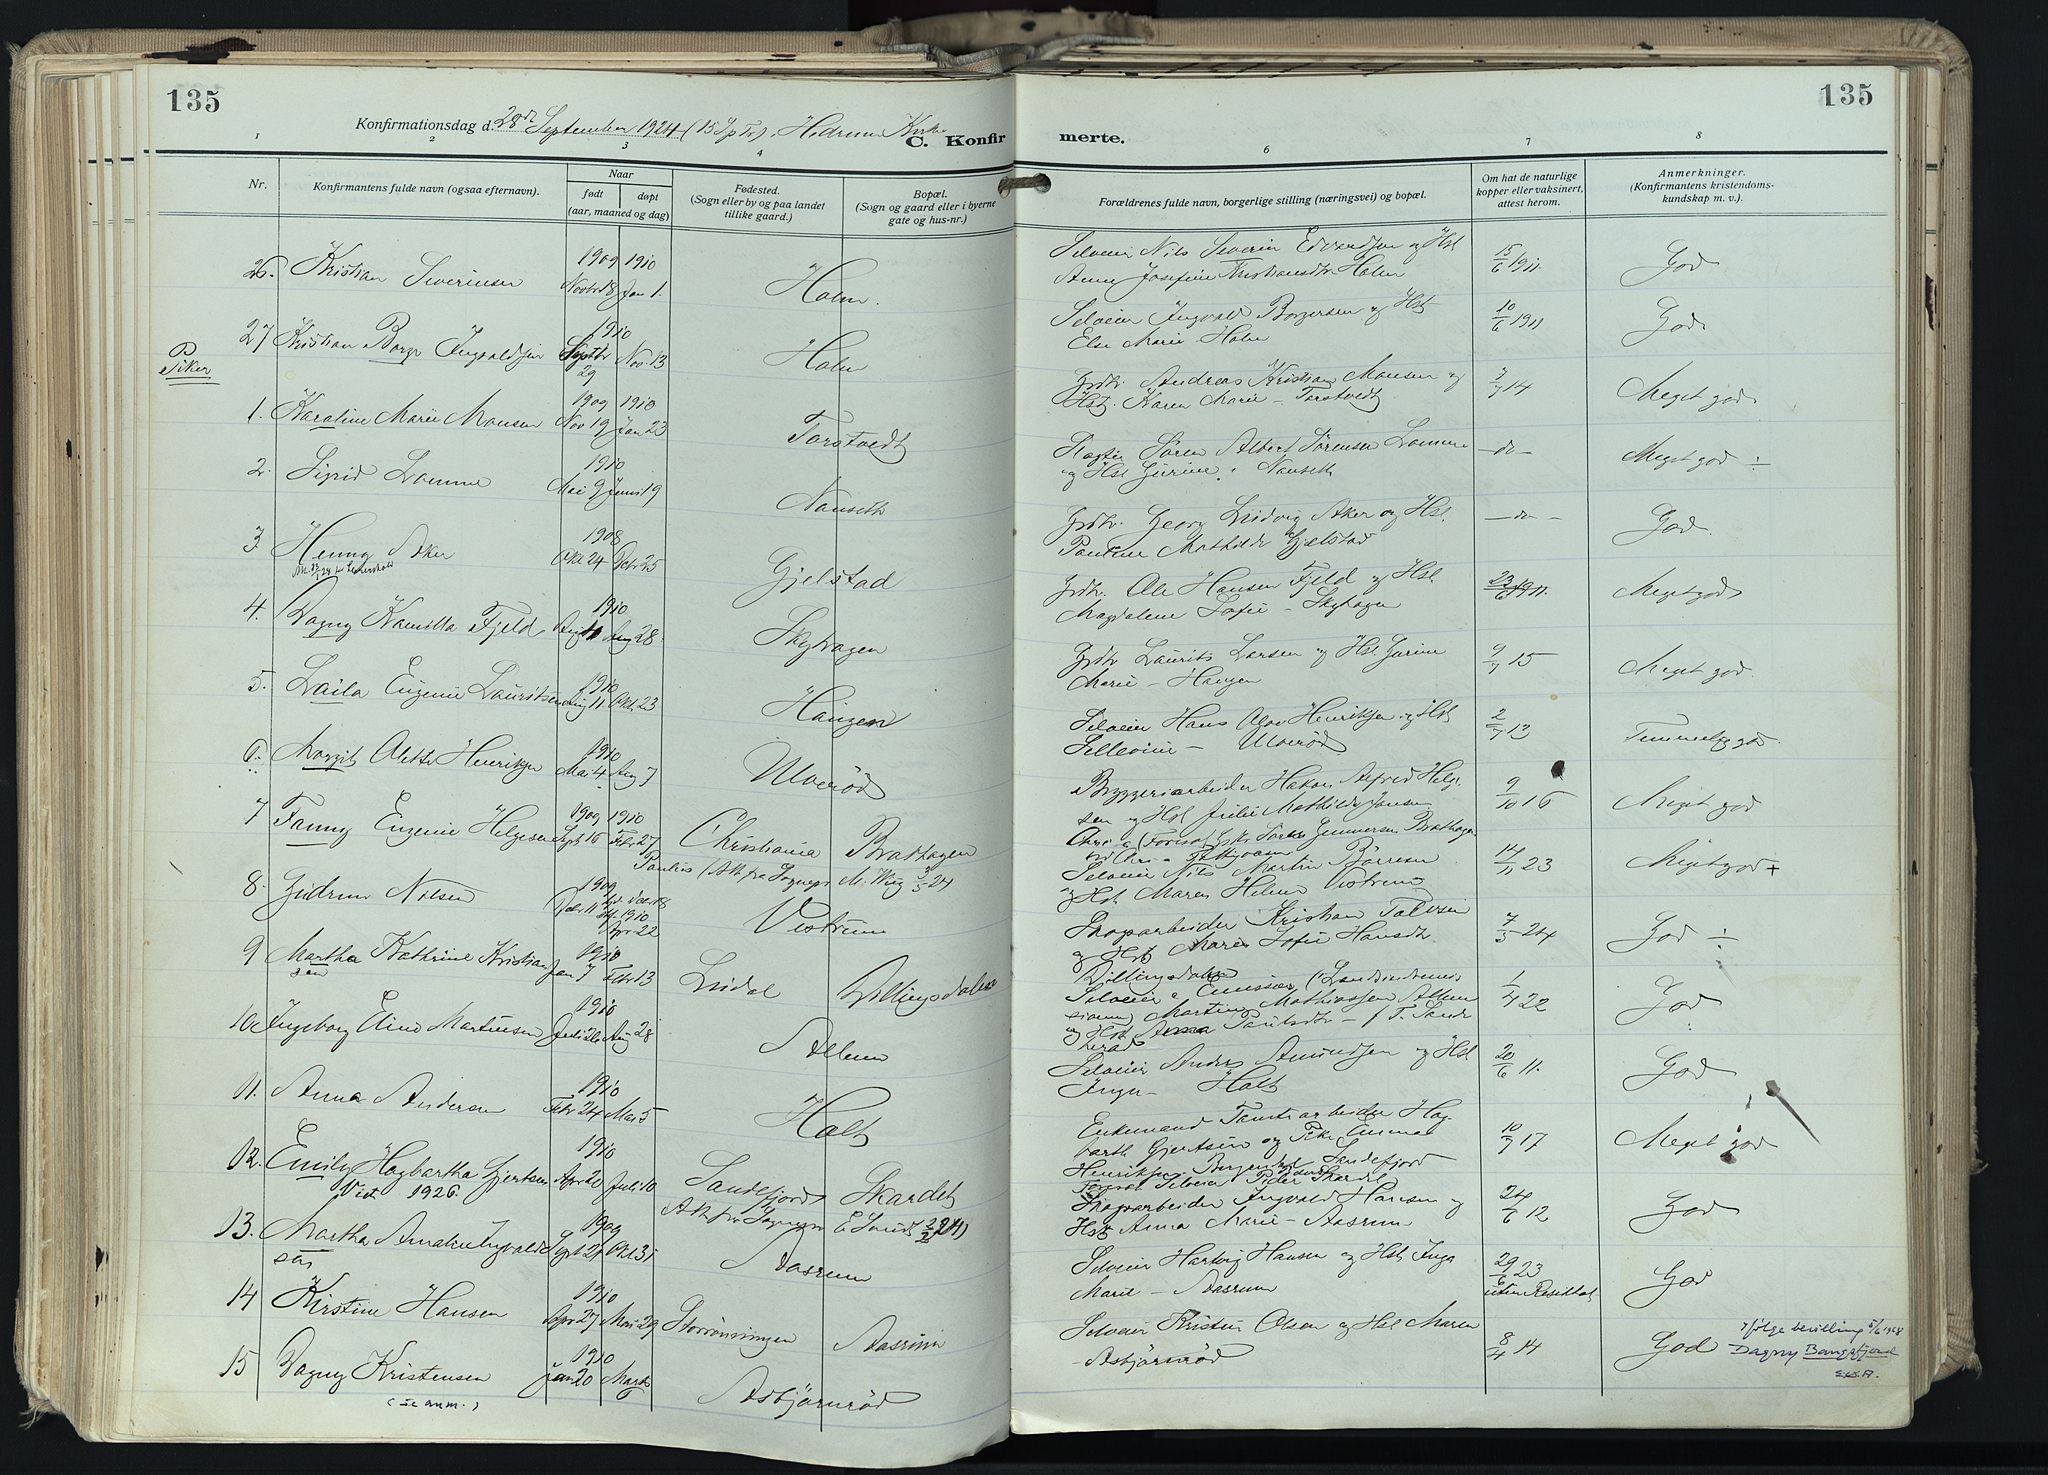 135
135
Konfirmationsdag d. 28de September 1924 (15 S. e. Tr.), Hedrum Kirke
C. Konfirmerte.
1 2 3 4 6 7 8
Nr.
Konfirmantens fulde navn (ogsaa efternavn).
Naar
født døpt
(aar, maaned og dag)
Fødested.
(Sogn eller by og paa landet
tillike gaard.)
Bopæl.
(Sogn og gaard eller i byerne
gate og hus-nr.)
Forældrenes fulde navn, borgerlige stilling (næringsvei) og bopæl.
Om hat de naturlige
kopper eller vaksinert,
attest herom.
Anmerkninger.
(Konfirmantens kristendoms-
kundskap m. v.)
26. Kristian Severinsen 1909 Novbr 18 1910 Jan 1. Holm.
Selveier Nils Severin Edvardsen og Hst
Anne Josefine Kristiansdtr Holm
15/6 1911. God
27 Kristian Borge Ingvaldsen 1910 Septbr 29 Nov. 13 Holm
Selveier Ingvald Borgersen og Hst
Else Marie Holm
10/6 1911 God
Piker
1. Karoline Marie Monsen 1909 Nov 19 1910 Jan 23 Torstvedt
Grdbr. Andreas Kristian Monsen og
Hst. Karen Marie – Torstvedt
7/7 14 Meget god
2. Sigrid Lomme 1910 Mai 9 Juni 19 Nanseth
Søren Albert Sørensen Lomme
og Hst Gurine, Nanseth
– do – Meget god ÷
3 Henny Aker 1908 Okt 24 Febr. 25 Gjelstad
Grdbr. Georg Ludvig Aker og Hst.
Pauline Mathilde Gjelstad
– do – God
4. Dagny Kamilla Fjeld 1910 Aug 28 Skyhagen
Grdbr. Ole Hansen Fjeld og Hst
Magdalene Sofie – Skyhagen
23/6 1911. Meget god
5. Laila Eugenie Lauritsen 1910 Aug 11 Okt. 23 Haugen
Grdbr Laurits Larsen og Hst Gurine
Marie – Haugen
9/7 15 Meget god.
6. Margit Alette Henriksen 1910 Mai 4 Aug 7 Ulverød
Selveier Hans Olav Henriksen og Hst
– Ulverød
2/7 13 Temmelig god.
7 Fanny Eugenie Helgesen 1909 Sept 16 1910 Febr 27 Christiania Brathagen
Paulus (Att. fra Sognepr. M. Wiig 3/5 24
Bryggeriarbeider Hakon Alfred Helge-
sen og Hst Julie Mathilde Jonsen
9/10 16 Meget god
8. Gudrun Nilsen 1909 1910 Apr. 22 Vestrum
Selveier Nils Martin Børresen
og Hst Maren Helene Vestrum
14/11 23 Meget god +
9 Martha Kathrine Kristian-
sen 1910 Jan 7 Febr 13 Lisdal Dillingsdalen
Skogarbeider Kristian Tolvsen
og Hst Maren Sofie Hansdtr
Dillingsdalen
7/3 24 God ÷
10. Ingeborg Eline Martinsen 1910 Juli 20 Aug 28 Allum
Selveier og Emissær (Landsindremis-
sionen) Martin Mathiassen Allum
og Hst Anna Paulsdtr – f. T. Sande-
herad
1/4 22 God
11. Anna Andersen 1910 Febr 24 Mai 5 Holt
Selveier Anders Amundsen og Hst
Inga – Holt
20/6 11. God
12. Emily Hagbartha Gjertsen 1910 Apr 20 Juli 10 Sandefjord Skardet
Vid. 1926. Att. fra Sognepr.
Enkemand Tomtearbeider Hag-
barth Gjertsen og Pike Emma
Henriksen Sandefjord
10/9 17 Meget god
13. Martha Amalie Ingvald-
sen 1909 Sept 24 Okt 31 Aasrum
Skogarbeider Ingvald Hansen og
Hst Anna Marie – Aasrum
24/6 12 God
14 Kirstine Hansen 1910 Apr 27 Mai 29 Storrønningen Aasrum
Selveier Hartvig Hansen og Hst Inga
Marie – Aasrum
29/6 23
uten Resultat God
15 Dagny Kristensen 1910 Jan 20 Mars 6 Asbjørnrød
(se anm.)
Selveier Kristen Olsen og Hst Maren
– Asbjørnrød
8/4 14 God
Ifølge bevilling 5/6 1928
Dagny Bangsfjord